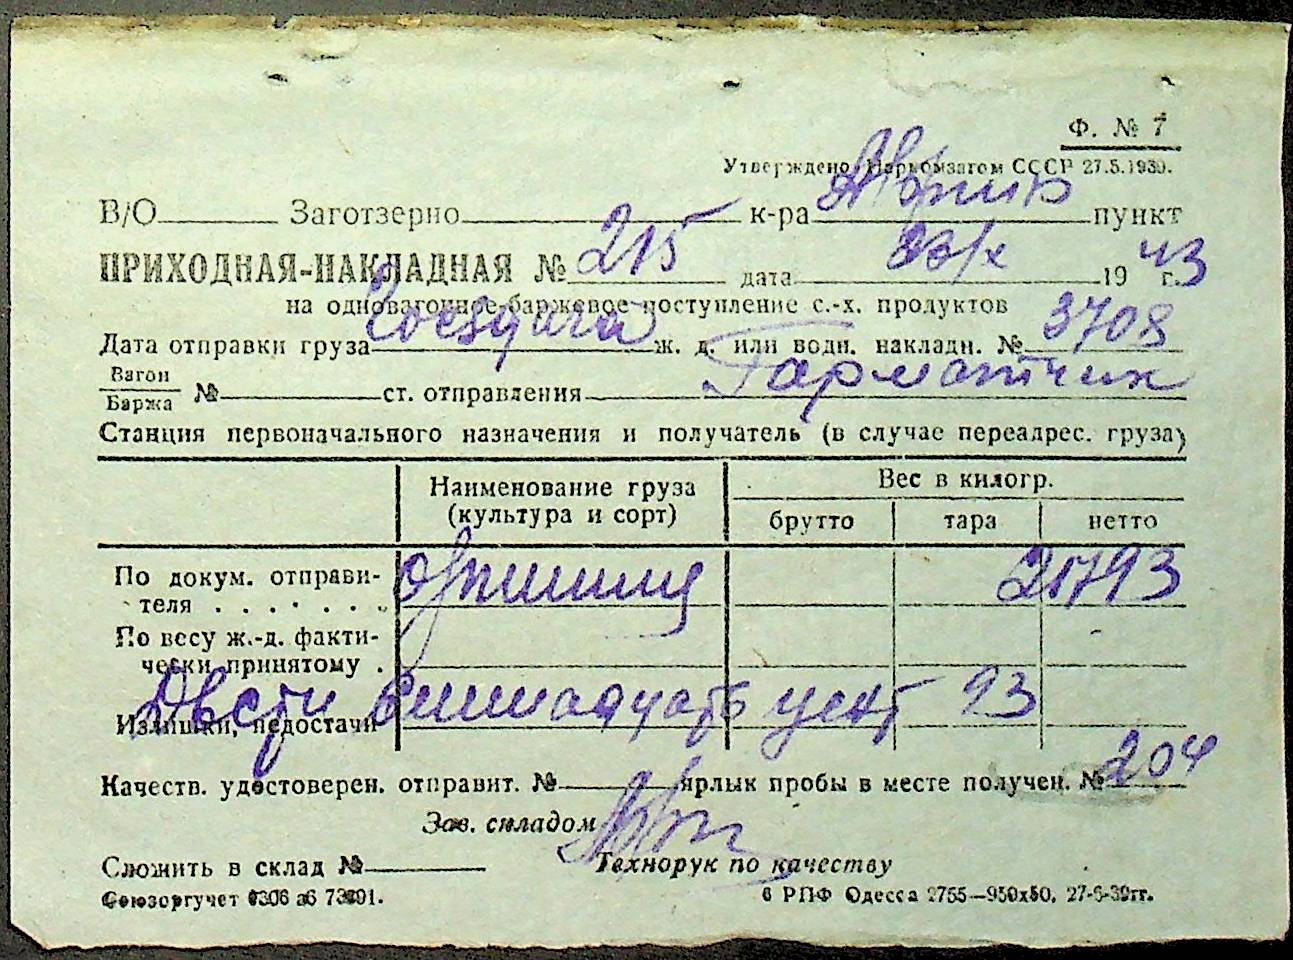 Ф. № 7
Утверждено Наркомзагом СССР 27.5.1939.
В/О Заготзерно к-ра пункт
ПРИХОДНАЯ-НАКЛАДНАЯ № 215 дата 1943 г.
на одновагонное-баржевое поступление с.-х. продуктов
Дата отправки груза ж. д. или водн. накладн. № 3708
Вагон
Баржа № ст. отправления
Станция первоначального назначения и получатель (в случае переадрес. груза)
Наименование груза (культура и сорт) Вес в килогр.
брутто тара нетто
По докум. отправи-
теля . . . . . . . 21793
По весу ж.-д. факти-
чески принятому .
Двести цент 93
Излишки, недостачи
Качеств. удостоверен. отправит. № ярлык пробы в месте получен. № 204
Зав. складом
Сложить в склад № Технорук по качеству
Союзоргучет 6 РПФ Одесса 2755—950х50, 27-6-39гг.